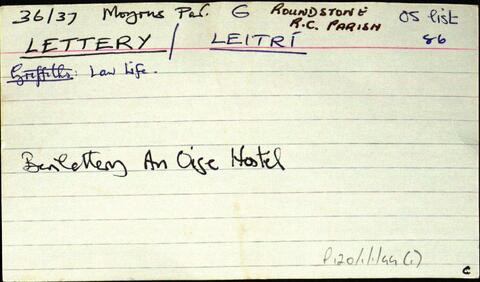 36/37 Moyrus Par. G ROUNDSTONE R.C. PARISH OS list 86
LETTERY / LEITRÍ
Griffiths: Law Life.
Benlettery An Oige Hostel
P120/1/1/44(i)
c